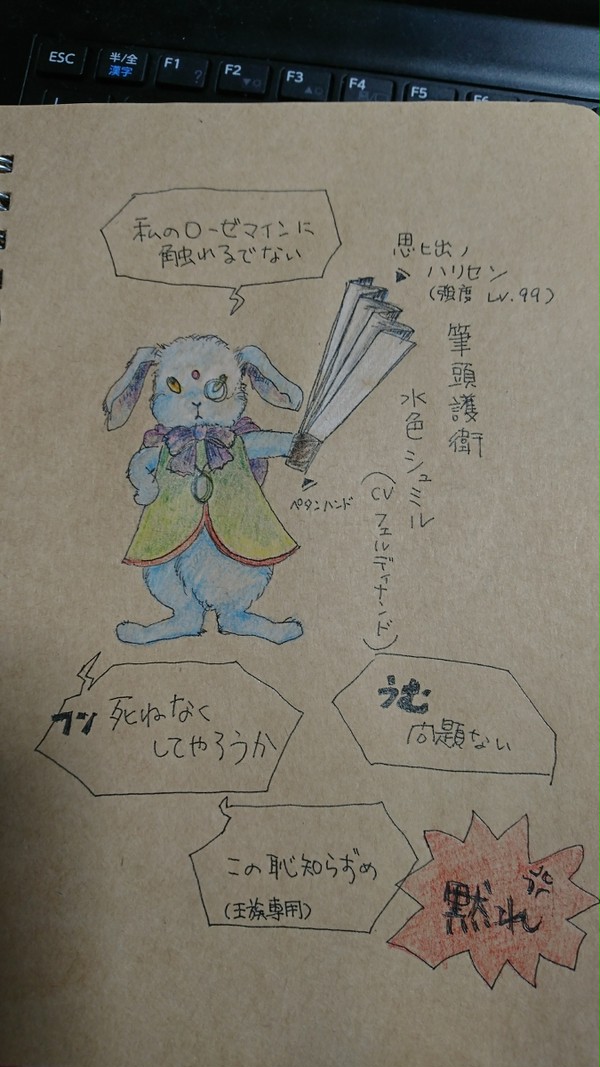 ESC
半/全
漢字
F1
F2
F3
F4
F5
私のローゼマインに
触れるでない
思ヒ出ノ
ハリセン
(強度 Lv.99)
筆頭護衛
水色シュミル
(CV フェルディナンド)
ペタンハンド
フン 死ねなく
してやろうか
うむ
問題ない
この恥知らずめ
(王族専用)
黙れ